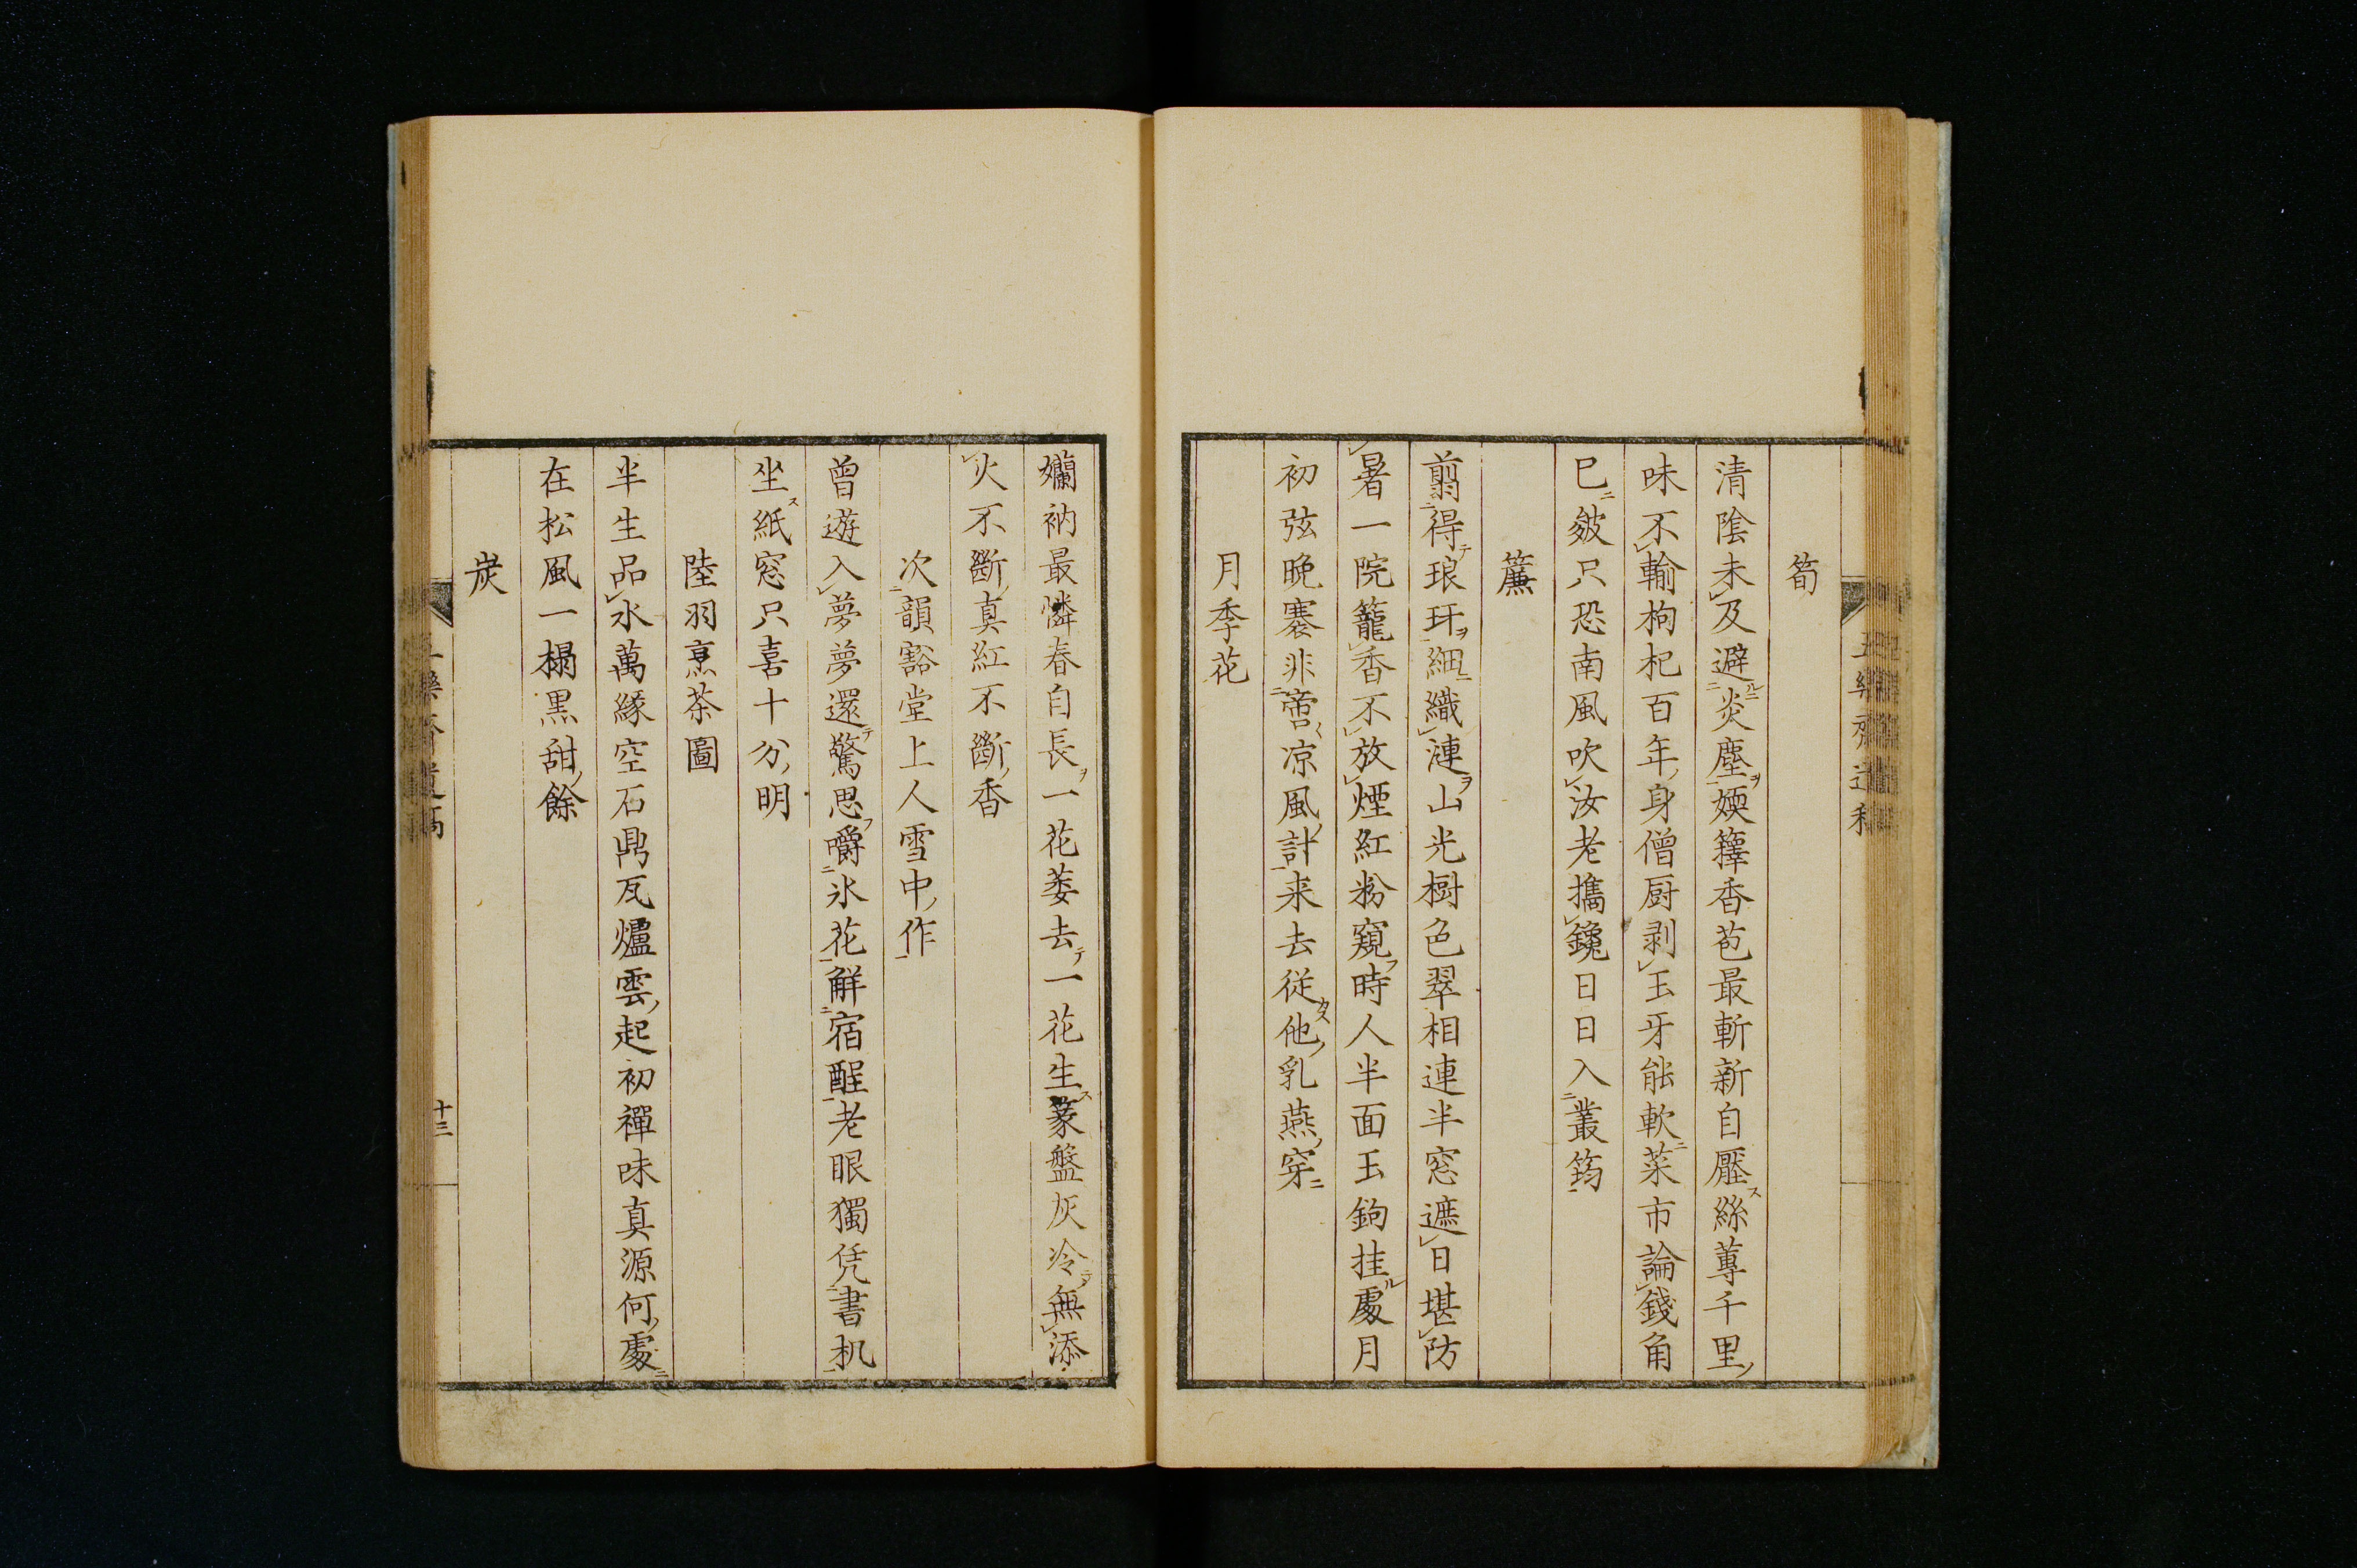 筍
清陰未及避炎塵媆籜香苞最斬新自壓絲蓴千里
味不輸枸杞百年身僧厨剥玉牙能軟菜市論錢角
巳皴只恐南風吹汝老攜鑱日日入叢筠
簾
翦得琅玕細織漣山光樹色翠相連半窓遮日堪防
暑一院籠香不放煙紅粉窺時人半面玉鉤挂處月
初弦晚褰非啻凉風計来去従他乳燕穿
月季花
嬾衲最憐春自長一花萎去一花生篆盤灰冷無添
火不斷真紅不斷香
次韻豁堂上人雪中作
曾遊入夢夢還驚思嚼氷花解宿酲老眼獨凭書机
坐紙窓只喜十分明
陸羽烹茶圖
半生品水萬緣空石鼎瓦爐雲起初禪味真源何處
在松風一榻黒甜餘
炭
十三